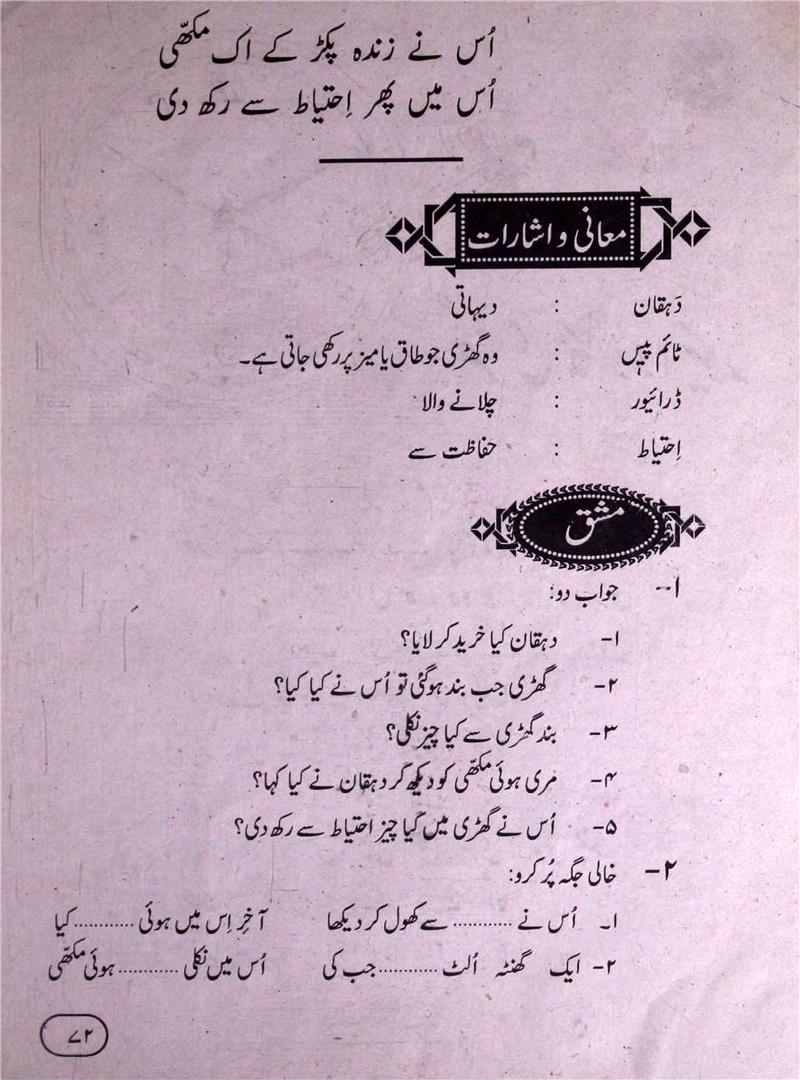 اُس نے زندہ پکڑ کے اک مکھّی
اُس میں پھر اِحتیاط سے رکھ دی
معانی و اشارات
دَہقان : دیہاتی
ٹائم پیس : وہ گھڑی جو طاق یا میز پر رکھی جاتی ہے۔
ڈرائیور : چلانے والا
اِحتیاط : حفاظت سے
مشق
۱- جواب دو:
۱- دہقان کیا خرید کر لایا؟
۲- گھڑی جب بند ہوگئی تو اُس نے کیا کیا؟
۳- بند گھڑی سے کیا چیز نکلی؟
۴- مری ہوئی مکھّی کو دیکھ کر دہقان نے کیا کہا؟
۵- اُس نے گھڑی میں کیا چیز احتیاط سے رکھ دی؟
۲- خالی جگہ پُر کرو:
۱۔ اُس نے ............ سے کھول کر دیکھا آخِر اِس میں ہوئی ............ کیا
۲- ایک گھنٹہ اُلٹ ............ جب کی اُس میں نکلی ............ ہوئی مکھّی
۷۲